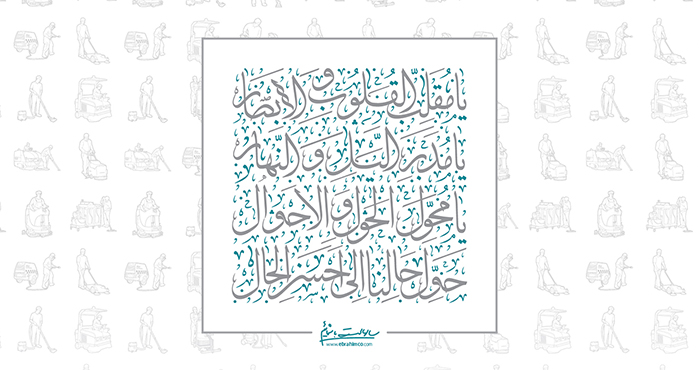 یا مُقَلِّبَ القُلُوبِ وَ الاَبْصار
یا مُدَبِّرَ اللَّیْلِ وَ النَّهار
یا مُحَوِّلَ الحَوْلِ وَ الاَحْوال
حَوِّلْ حالَنا اِلی اَحْسَنِ الحال
www.ebrahimco.com